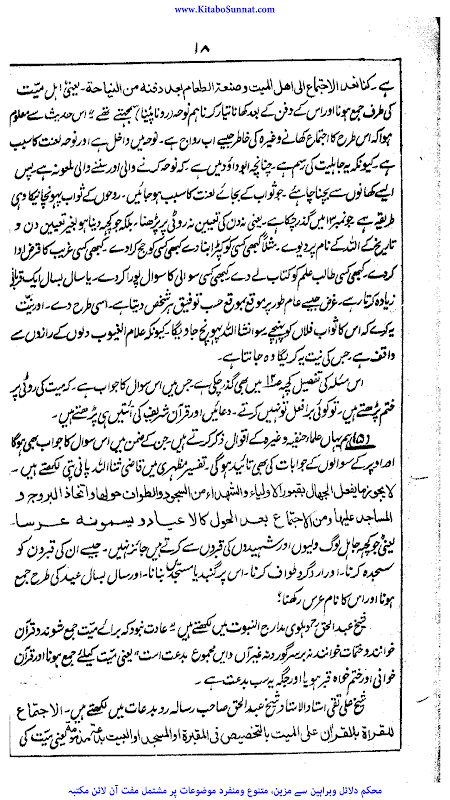 www.KitaboSunnat.com
۱۸
ہے۔ کنا نعد الاجتماع الی اھل المیت و صنعۃ الطعام بعد دفنہ من النیاحۃ۔ یعنی اہل میت
کی طرف جمع ہونا اور اس کے دفن کے بعد کھانا تیار کرنا ہم نوحہ (رونا پیٹنا) سمجھتے تھے۔" اس حدیث سے معلوم
ہوا کہ اس طرح کا اجتماع کھانے وغیرہ کی خاطر جیسے اب رواج ہے۔ نوحہ میں داخل ہے اور نوحہ لعنت کا سبب
ہے۔ کیونکہ یہ جاہلیت کی رسم ہے۔ چنانچہ ابوداؤد میں ہے کہ نوحہ کرنے والی اور سننے والی ملعونہ ہے پس
ایسے کھانوں سے بچنا چاہئے۔ جو ثواب کے بجائے لعنت کا سبب ہو جائیں۔ روحوں کے ثواب پہونچانیکا وہی
طریقہ ہے جو نمبر ۱۳ میں گذر چکا ہے۔ یعنی نہ دن کی تعیین نہ روٹی پر پڑھنا۔ بلکہ جو کچھ دینا ہو بغیر تعیین دن و
تاریخ کے اللہ کے نام پر دیوے۔ مثلاً کبھی کسی کو کپڑا بنا دے کبھی کسی کو حج کرا دے۔ کبھی کسی غریب کا قرض ادا
کر دے۔ کبھی کسی طالب علم کو کتاب لے دے۔ کبھی کسی سوالی کا سوال پورا کر دے۔ یا سال بسال ایک قربانی
زیادہ کرتا رہے۔ غرض جیسے عام طور پر موقع بموقع حسب توفیق ہر شخص دیتا ہے۔ اسی طرح دے۔ اور نیت
یہ کرے کہ اس کا ثواب فلاں کو پہنچے سو انشاء اللہ پہونچ جاویگا کیونکہ علام الغیوب دلوں کے رازوں سے
واقف ہے جس کی نیت یہ کریگا وہ جانتا ہے۔
اس مسئلہ کی تفصیل کچھ میں بھی گذر چکی ہے جس میں اس سوال کا جواب ہے۔ کہ میت کی روٹی پر
ختم پڑھتے ہیں۔ تو کوئی برا فعل تو نہیں کرتے۔ دعائیں اور قرآن شریف کی آئتیں ہی پڑھتے ہیں۔
(۵) ہم یہاں علماء حنفیہ وغیرہ کے اقوال ذکر کرتے ہیں۔ جن کے ضمن میں اس سوال کا جواب بھی ہوگا
اور اوپر کے سوالوں کے جوابات کی بھی تائید ہوگی۔ تفسیر مظہری میں قاضی ثناء اللہ پانی پتی لکھتے ہیں۔
لا یجوز ما یفعل الجھال بقبور الاولیاء و الشھداء من السجود و الطواف حولھا و اتخاذ السروج و
المساجد علیھا و من الاجتماع بعد الحول کالاعیاد و یسمونہ عرسا۔
یعنی جو کچھ جاہل لوگ ولیوں اور شہیدوں کی قبروں سے کرتے ہیں جائز نہیں۔ جیسے ان کی قبروں کو
سجدہ کرنا۔ اور ارد گرد طواف کرنا۔ اس پر گنبد یا مسجدیں بنانا۔ اور سال بسال عید کی طرح جمع
ہونا اور اس کا نام عرس رکھنا؟
شیخ عبد الحق دہلوی مدارج النبوت میں لکھتے ہیں "عادت نبود کہ برائے میت جمع شوند و قرآن
خوانند و ختمات خوانند نہ بر سر گور و نہ غیر آں و ایں مجموع بدعت است" یعنی میت کیلئے جمع ہونا اور قرآن
خوانی اور ختم خواہ قبر ہو یا اور جگہ یہ سب بدعت ہے۔
شیخ علی متقی استاذ الاستاذ شیخ عبد الحق صاحب رسالہ رد بدعات میں لکھتے ہیں۔ الاجتماع
للقراۃ بالقران علی المیت بالتخصیص فی المقبرۃ او المسجد او البیت بدعۃ مذمومۃ یعنی میت کی
محکم دلائل وبراہین سے مزین، متنوع ومنفرد موضوعات پر مشتمل مفت آن لائن مکتبہ